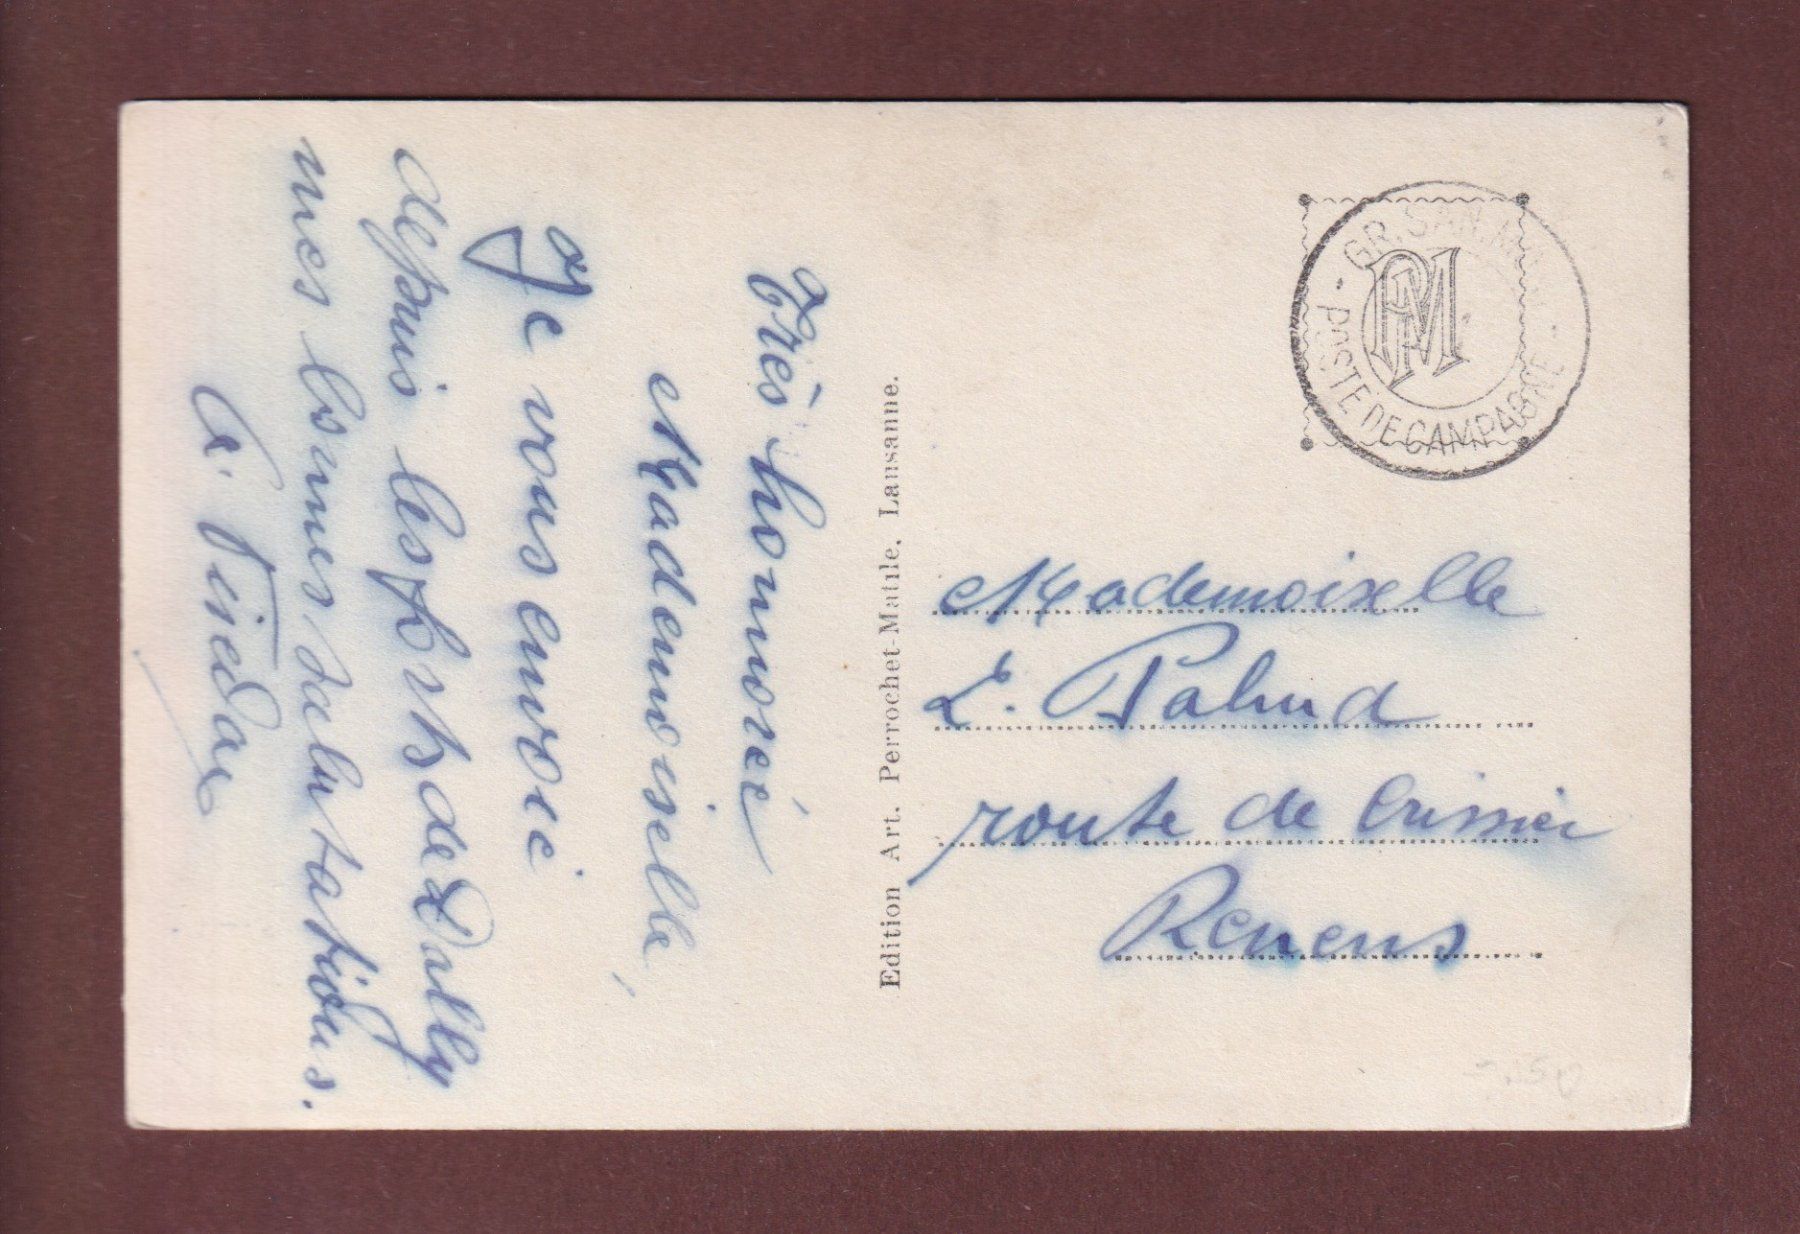 Très honnorée
Mademoiselle,
Je vous envoie
depuis les forts de Dailly
mes bonnes salutations.
A.
Edition Art. Perrochet-Matile, Lausanne.
GR. SAN. MON.
POSTE DE CAMPAGNE
PM
Mademoiselle
L. Pahud
route de Crissier
Renens
-.50